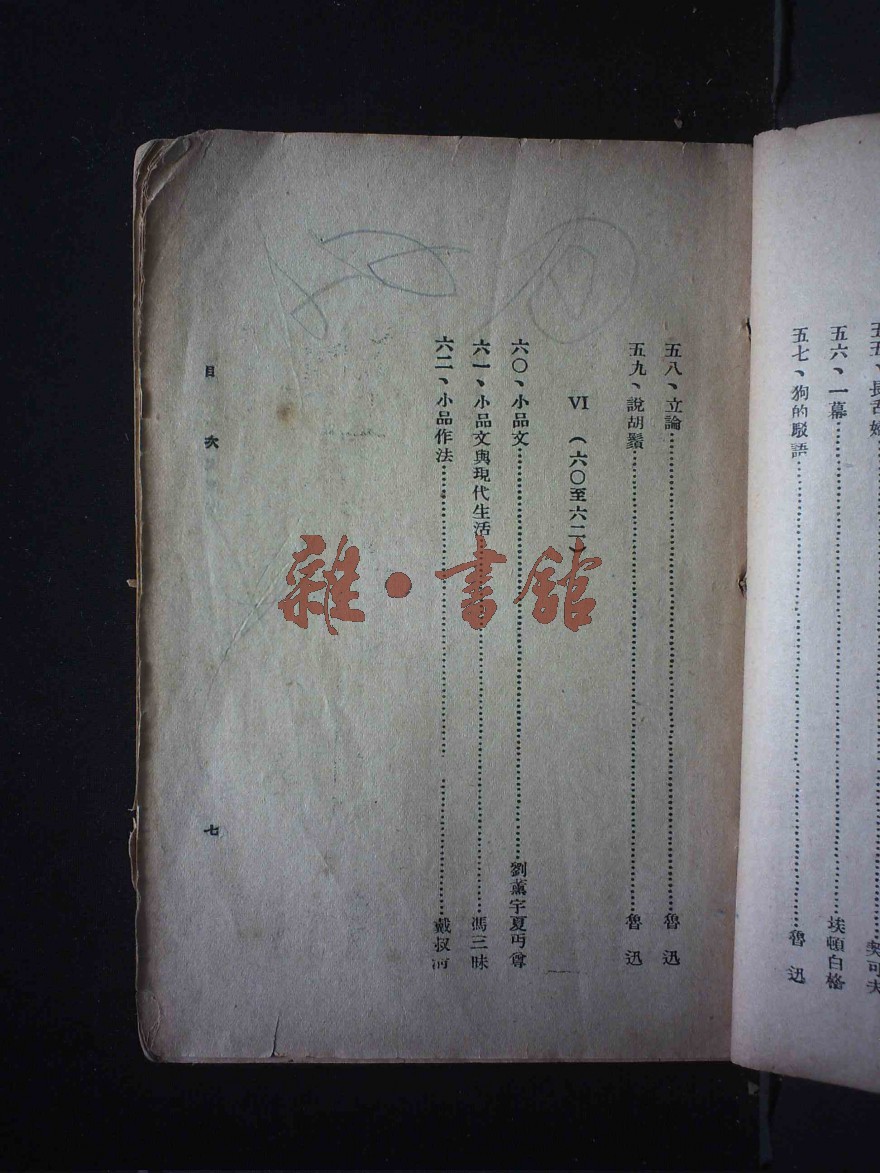 五五、長舌婦……契可夫
五六、一幕……埃頓白格
五七、狗的駁語……魯迅
五八、立論……魯迅
五九、說胡鬚……魯迅
VI （六〇至六二）
六〇、小品文……劉薰宇夏丏尊
六一、小品文與現代生活……馮三昧
六二、小品作法……戴叔清
目次
七
雜·書館